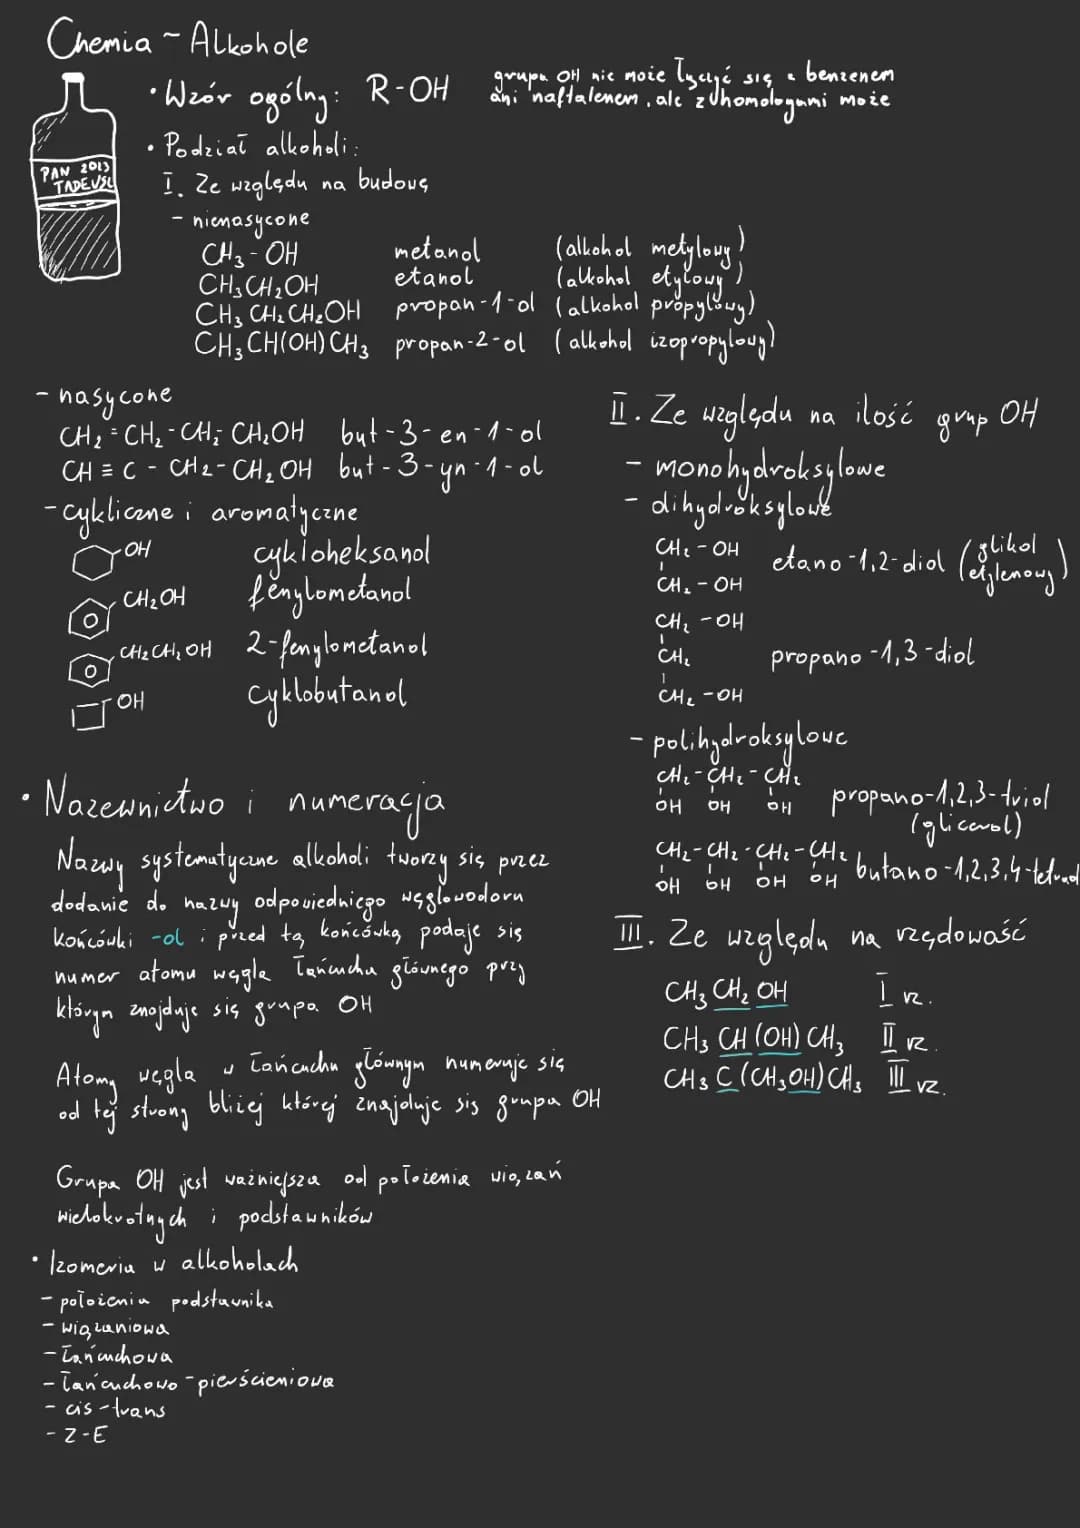 Chemia ~ Alkohole
PAN 2013
TADEUSZ
• Wzór ogólny: R-OH
grupa OH nie może łączyć się z benzenem
ani naftalenem, ale z homologami może
• Podział alkoholi:
I. Ze względu na budowę
- nienasycone
CH₃-OH metanol (alkohol metylowy)
CH₃CH₂OH etanol (alkohol etylowy)
CH₃CH₂CH₂OH propan-1-ol (alkohol propylowy)
CH₃CH(OH)CH₃ propan-2-ol (alkohol izopropylowy)
- nasycone
CH₂=CH₂-CH₂-CH₂OH but-3-en-1-ol
CH≡C-CH₂-CH₂OH but-3-yn-1-ol
- cykliczne i aromatyczne
OH cykloheksanol
CH₂OH fenylometanol
CH₂CH₂OH 2-fenylometanol
OH cyklobutanol
• Nazewnictwo i numeracja
Nazwy systematyczne alkoholi tworzy się przez
dodanie do nazwy odpowiedniego węglowodoru
końcówki -ol i przed tą końcówką podaje się
numer atomu węgla łańcucha głównego przy
którym znajduje się grupa OH
Atomy węgla w łańcuchu głównym numeruje się
od tej strony bliżej której znajduje się grupa OH
Grupa OH jest ważniejsza od położenia wiązań
wielokrotnych i podstawników
• Izomeria w alkoholach
- położenia podstawnika
- wiązaniowa
- łańcuchowa
- łańcuchowo-pierścieniowa
- cis-trans
- Z-E
II. Ze względu na ilość grup OH
- monohydroksylowe
- dihydroksylowe
CH₂-OH
CH₂-OH
etano-1,2-diol (glikol etylenowy)
CH₂-OH
CH₂
CH₂-OH
propano-1,3-diol
- polihydroksylowe
CH₂-CH₂-CH₂
OH OH OH
propano-1,2,3-triol
(glicerol)
CH₂-CH₂-CH₂-CH₂
OH OH OH OH
butano-1,2,3,4-tetraol
III. Ze względu na rzędowość
CH₃CH₂OH I rz.
CH₃CH(OH)CH₃ II rz.
CH₃C(CH₃OH)CH₃ III rz.